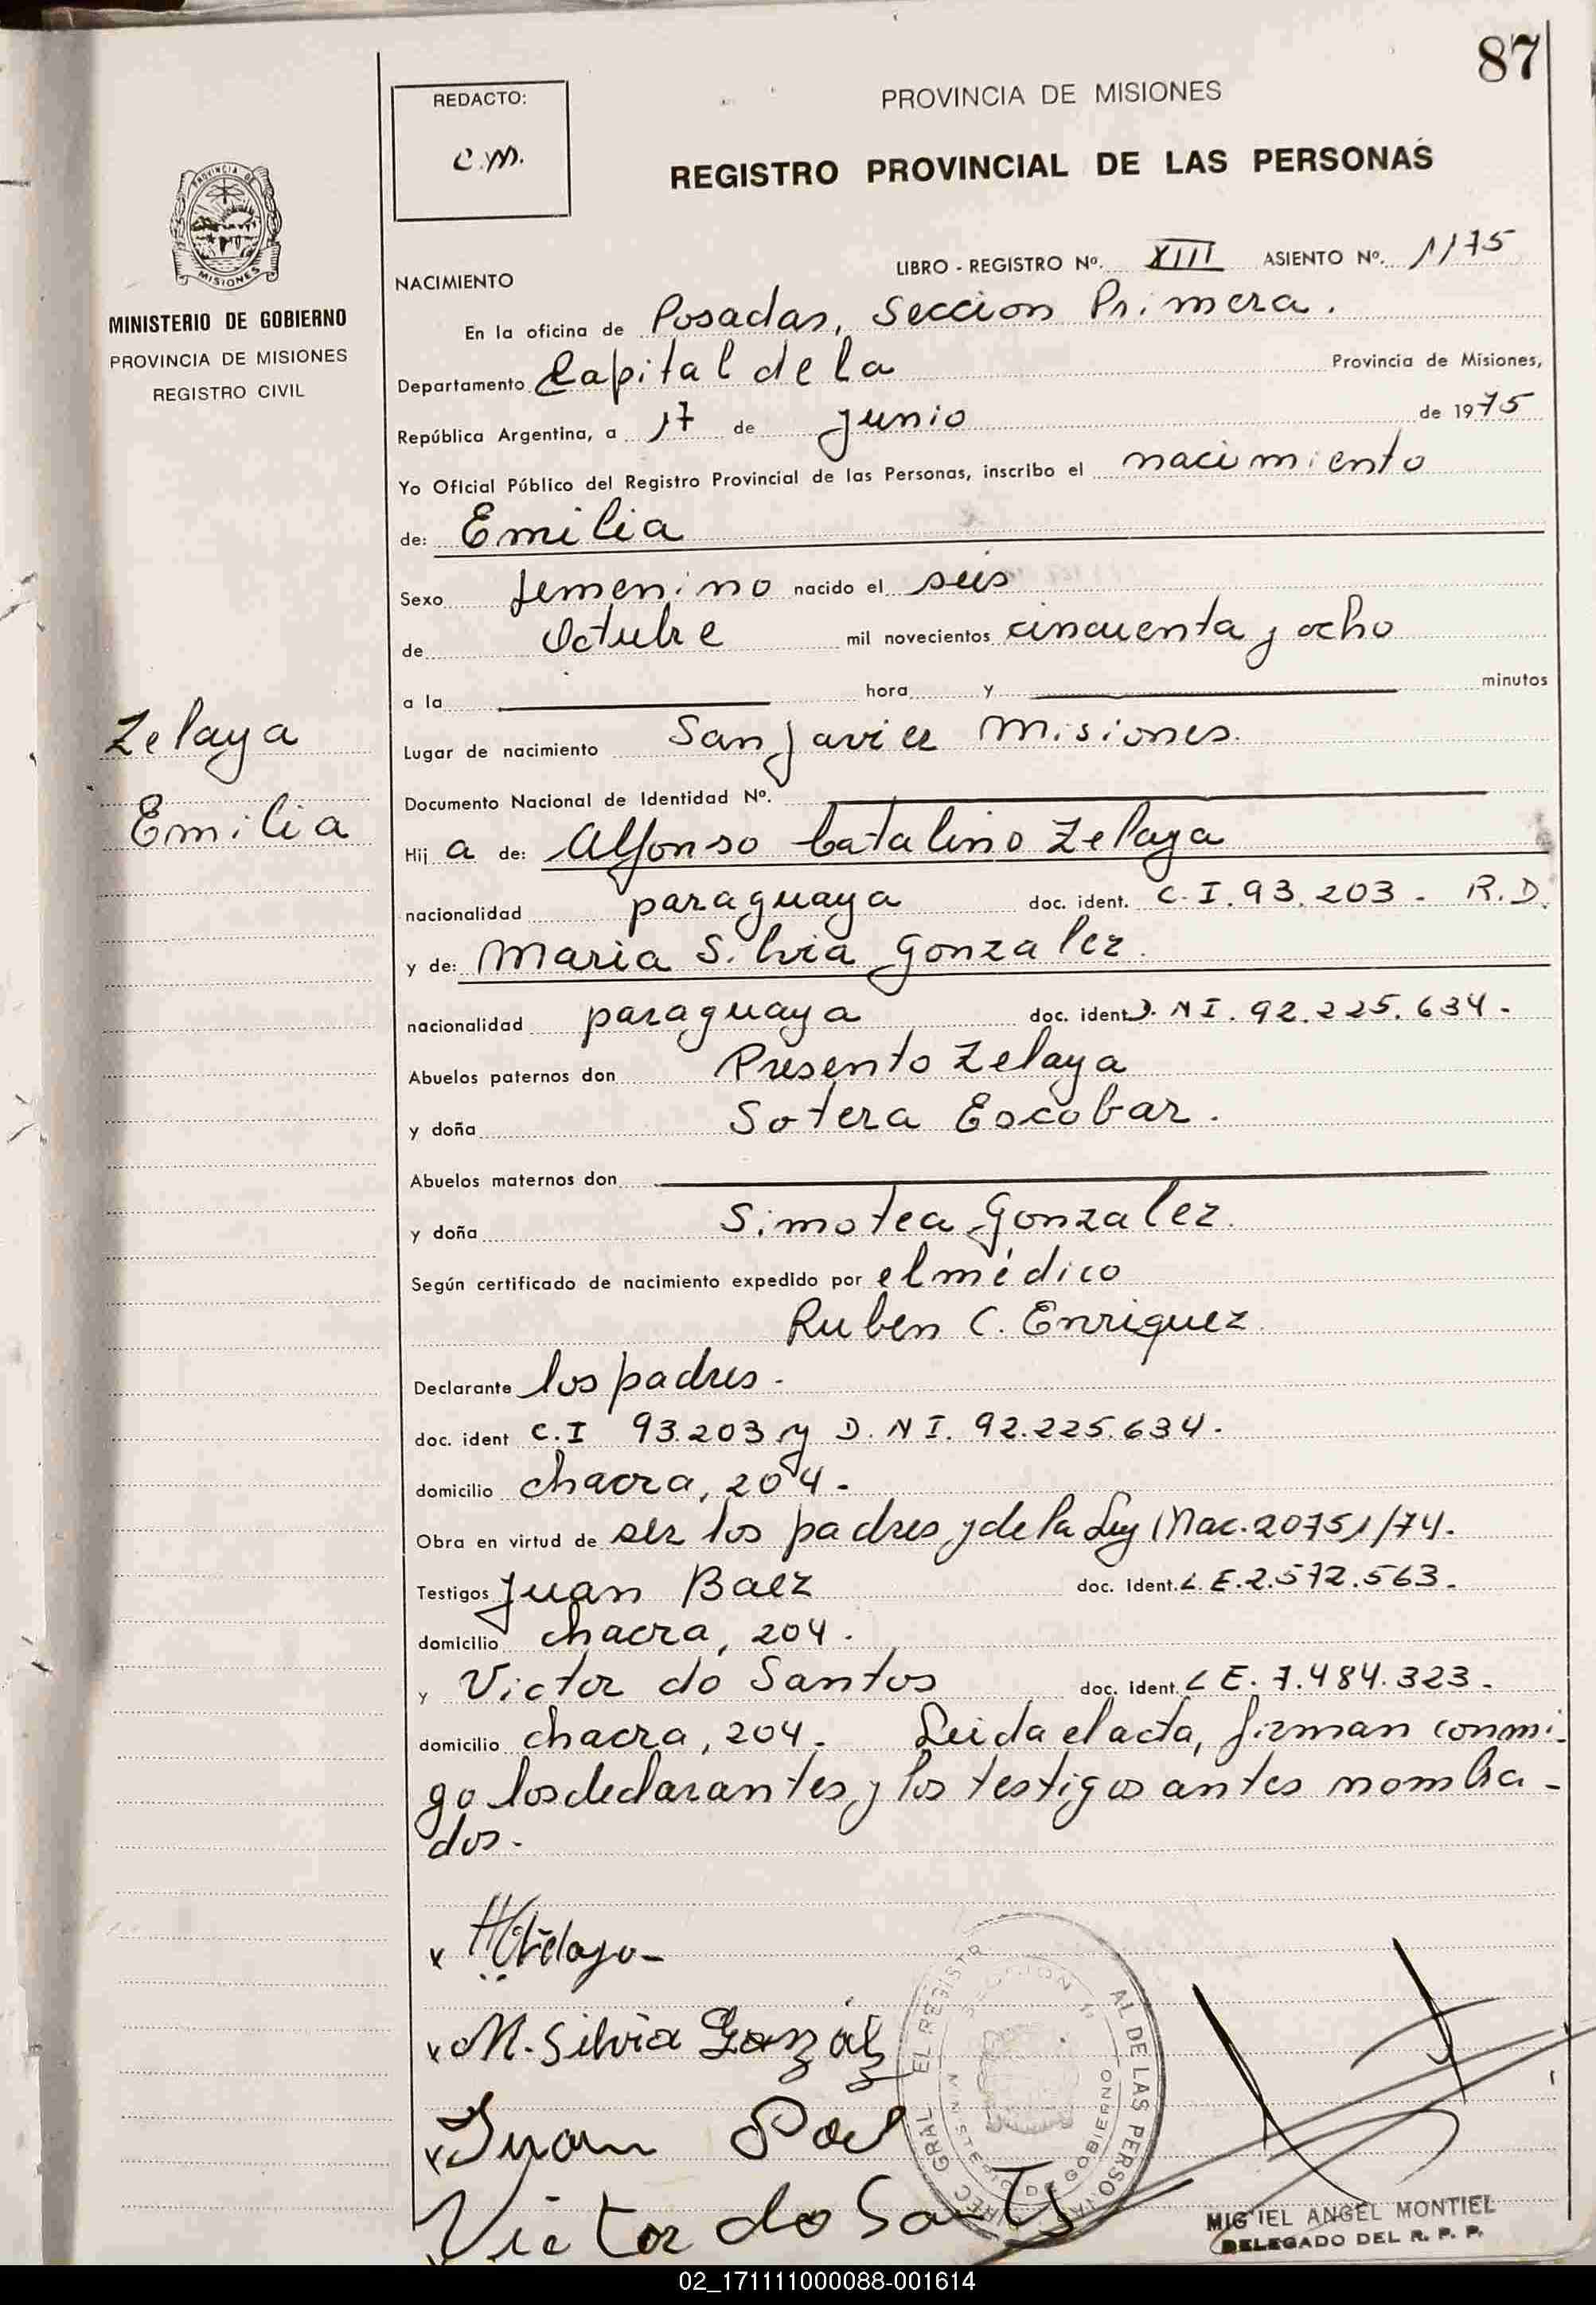 87
REDACTO:
C.M.
PROVINCIA DE MISIONES
REGISTRO PROVINCIAL DE LAS PERSONAS
PROVINCIA DE
MISIONES
MINISTERIO DE GOBIERNO
PROVINCIA DE MISIONES
REGISTRO CIVIL
LIBRO - REGISTRO Nº. XIII ASIENTO Nº. 1175
NACIMIENTO
En la oficina de Posadas, Seccion Primera.
Departamento Capital de la Provincia de Misiones,
República Argentina, a 17 de junio de 1975
Yo Oficial Público del Registro Provincial de las Personas, inscribo el nacimiento
de: Emilia
Sexo femenino nacido el seis
de Octubre mil novecientos cincuenta y ocho
a la hora y minutos
Zelaya
Emilia
Lugar de nacimiento San Javier Misiones.
Documento Nacional de Identidad Nº.
Hij a de: Alfonso Catalino Zelaya
nacionalidad paraguaya doc. ident. C.I. 93.203 - R.D.
y de: Maria Silvia Gonzalez.
nacionalidad paraguaya doc. ident. D.N I. 92.225.634.
Abuelos paternos don Presento Zelaya
y doña Sotera Escobar.
Abuelos maternos don
y doña Simotea Gonzalez.
Según certificado de nacimiento expedido por el médico
Ruben C. Enriquez
Declarante los padres.
doc. ident C.I 93.203 y D.N I. 92.225.634.
domicilio chacra, 204.
Obra en virtud de ser los padres y de la Ley Nac. 20751/74.
Testigos Juan Baez doc. Ident. L.E. 2.572.563.
domicilio chacra, 204.
y Victor do Santos doc. ident. L E. 7.484.323.
domicilio chacra, 204. Leida el acta, firman conmi
go los declarantes y los testigos antes nombra-
dos.
x
x M. Silvia Gonzál
x Juan
Victor do
DIREC GRAL EL REGISTR AL DE LAS PERSONA
SECCION 1
MINISTERIO DE GOBIERNO
MIGUEL ANGEL MONTIEL
DELEGADO DEL R. P. P.
02_171111000088-001614